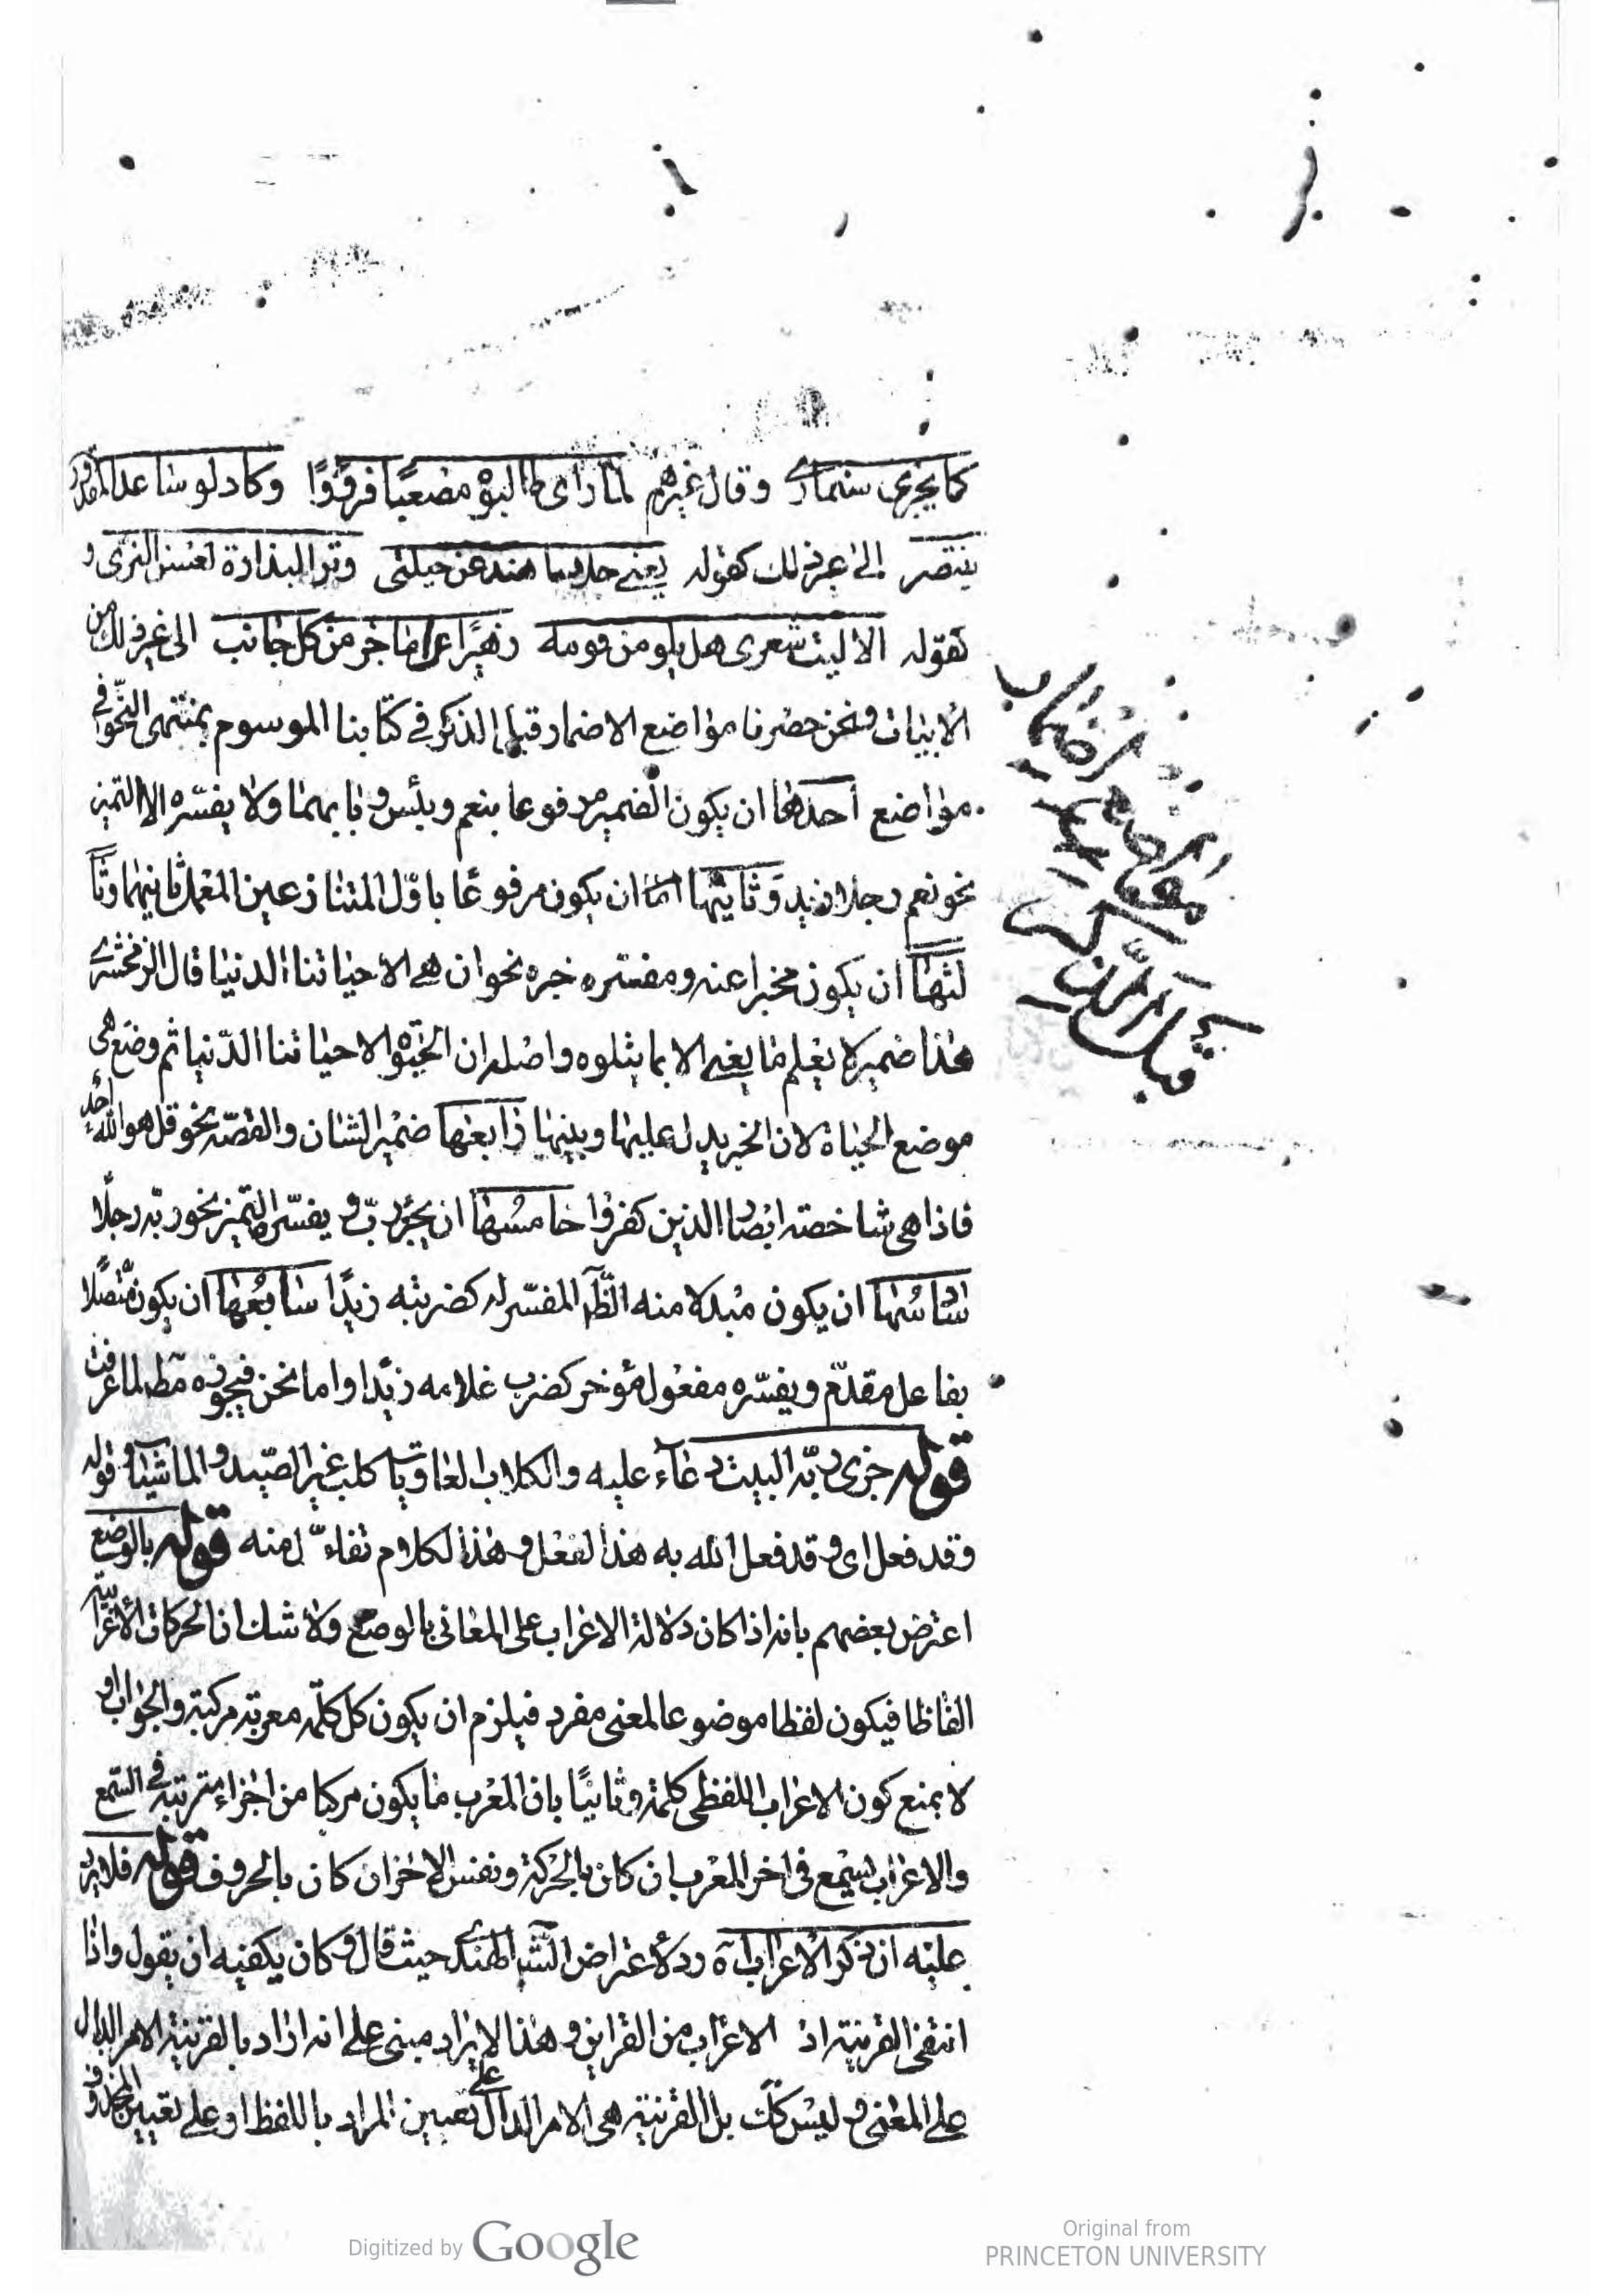 كما يجزى سنمار وقال غيرهم لما راى طالبوه مصعبا فزعوا وكاد لو ساعد المقدور
ينتصر الى غير ذلك كقوله يغنى حليها هند عن حيلتى وتر
كقوله الا ليت شعرى هل يلومن قومه زهيرا على ما جر من كل جانب الى غير ذلك من
الابيات ونحن حضرنا مواضع الاضمار قبل الذكر فى كتابنا الموسوم بمنتهى النحو فى
مواضع احدها ان يكون الضمير مرفوعا بنعم وبئس وبابهما ولا يفسره الا التميز
نحو نعم رجلا زيد وثانيها ان يكون مرفوعا باول المتنازعين المعمل ثانيهما وثا
لثها ان يكون مخبرا عنه ومفسره خبره نحو ان هى الا حياتنا الدنيا قال الزمخشرى
هذا ضمير لا يعلم ما يعنى الا بما يتلوه واصله ان الحيوة الا حياتنا الدنيا ثم وضع هى
موضع الحياة لان الخبر يدل عليها ويبينها رابعها ضمير الشان والقصه نحو قل هو الله احد
فاذا هى شاخصة ابصار الذين كفروا خامسها ان يجر برب ويفسره التميز نحو ربه رجلا
سادسها ان يكون مبدلا منه الظ المفسر له كضربته زيدا سابعها ان يكون متصلا
بفاعل مقدم ويفسره مفعول مؤخر كضرب غلامه زيدا واما نحن فيجوزه مط لما عرفت
قوله جزى ربه البيت دعاء عليه والكلاب العاويات كلب غير الصيد والماشية قوله
وقد فعل اى وقد فعل الله به هذا الفعل وهذا الكلام تفاءل منه قوله بالوضع
اعترض بعضهم بانه اذا كان دلالة الاعراب على المعانى بالوضع ولا شك ان الحركات الاعرابية
الفاظا فيكون لفظا موضوعا لمعنى مفرد فيلزم ان يكون كل كلمة معربة مركبة والجواب او
لا بمنع كون الاعراب اللفظى كلمة وثانيا بان المعرب ما يكون مركبا من اجزاء مترتبة فى السمع
والاعراب يسمع فى اخر المعرب ان كان بالحركة ونفس الاخر ان كان بالحروف قوله فلا يرد
عليه ان ذكر الاعراب اه رد لاعتراض الش الهندى حيث قال وكان يكفيه ان يقول واذا
انتفى القرينة اذ الاعراب من القراين وهذا الايراد مبنى على انه اراد بالقرينة الامر الدال
على المعنى وليس كك بل القرينة هى الامر الدال على تعيين المراد باللفظ او على تعيين المحذوف
Digitized by Google
Original from
PRINCETON UNIVERSITY